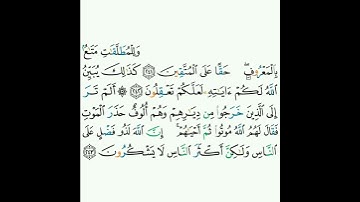 وَلِلْمُطَلَّقَٰتِ مَتَٰعٌۢ
بِالْمَعْرُوفِ ۖ حَقًّا عَلَى الْمُتَّقِينَ ﴿٢٤١﴾ كَذَٰلِكَ يُبَيِّنُ
اللَّهُ لَكُمْ ءَايَٰتِهِۦ لَعَلَّكُمْ تَعْقِلُونَ ﴿٢٤٢﴾ ۞ أَلَمْ تَرَ
إِلَى الَّذِينَ خَرَجُوا۟ مِن دِيَٰرِهِمْ وَهُمْ أُلُوفٌ حَذَرَ الْمَوْتِ
فَقَالَ لَهُمُ اللَّهُ مُوتُوا۟ ثُمَّ أَحْيَٰهُمْ ۚ إِنَّ اللَّهَ لَذُو فَضْلٍ عَلَى
النَّاسِ وَلَٰكِنَّ أَكْثَرَ النَّاسِ لَا يَشْكُرُونَ ﴿٢٤٣﴾